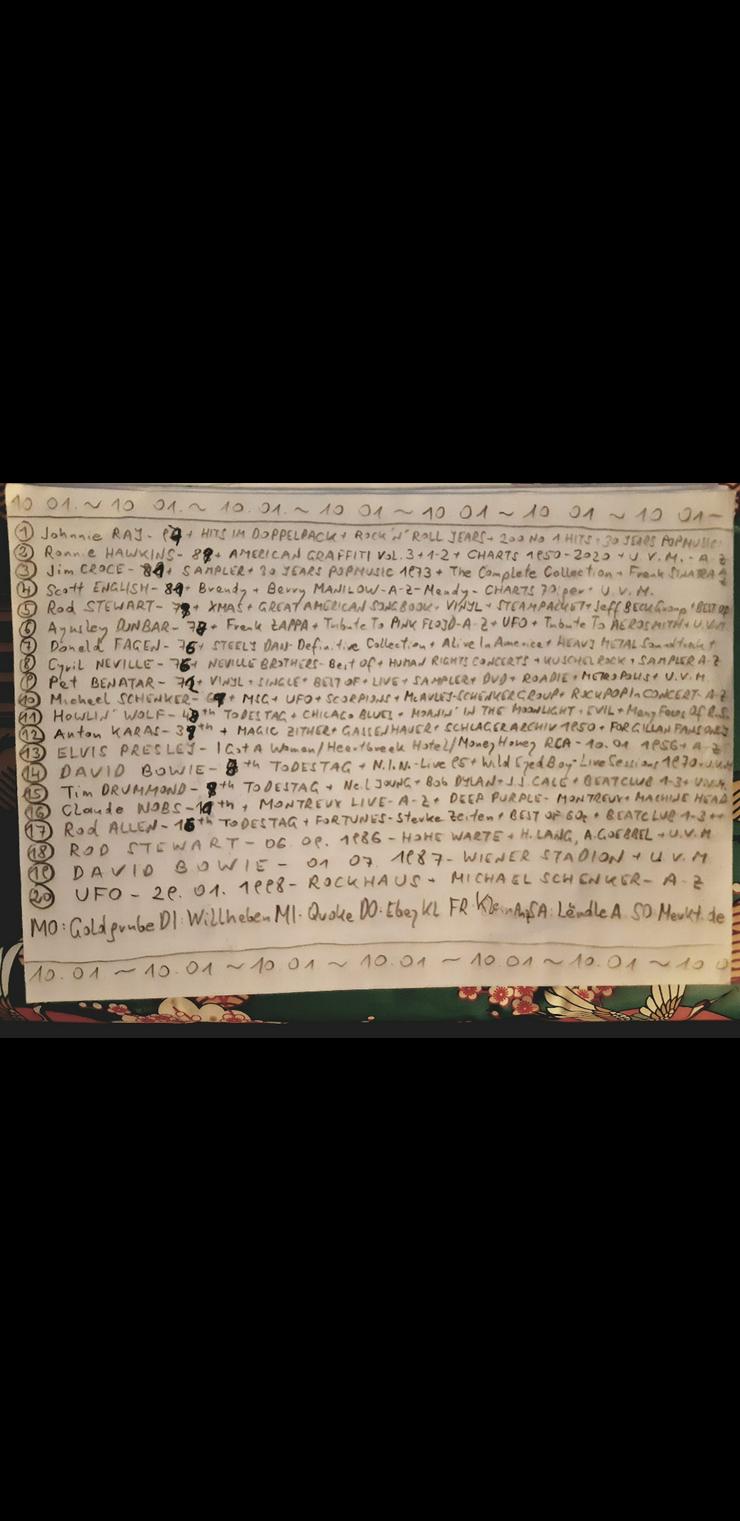 10 01. ~ 10 01. ~ 10. 01. ~ 10 01 ~ 10 01 ~ 10 01 ~ 10 01 ~
① Johnnie RAY - + HITS IM DOPPELPACK + ROCK'N'ROLL YEARS + 200 NO 1 HITS + 30 YEARS POPMUSIC
② Ronnie HAWKINS - + AMERICAN GRAFFITI VOL. 3+1-2 + CHARTS 1950-2020 + U.V.M. - A-Z
③ Jim CROCE - + SAMPLER + 30 YEARS POPMUSIC 1973 + The Complete Collection + Frank SINATRA
④ Scott ENGLISH - + Brandy + Barry MANILOW - A-Z - Mandy - CHARTS 70iper + U.V.M.
⑤ Rod STEWART - + XMAS + GREAT AMERICAN SONGBOOK + VINYL + STEAMPACKET + Jeff BECK Group + BEST OF
⑥ Aynsley DUNBAR - + Frank ZAPPA + Tribute To PINK FLOYD - A-Z + UFO + Tribute To AEROSMITH + U.V.M
⑦ Donald FAGEN - 76 + STEELY DAN - Definitive Collection + Alive In America + HEAVY METAL Soundtrack +
⑧ Cyril NEVILLE - 76 + NEVILLE BROTHERS - Best Of + HUMAN RIGHTS CONCERTS + KUSCHELROCK + SAMPLER A-Z
⑨ Pat BENATAR - + VINYL + SINGLE + BEST OF + LIVE + SAMPLER + DVD + ROADIE + METROPOLIS + U.V.M
⑩ Michael SCHENKER - 69 + MSG + UFO + SCORPIONS + McAULEY-SCHENKER GROUP + ROCKPOP In CONCERT - A-Z
⑪ HOWLIN' WOLF - th TODESTAG + CHICAGO BLUES + MOANIN' IN THE MOONLIGHT + EVIL + Many Faces Of R.S.
⑫ Anton KARAS - 39th + MAGIC ZITHER + GASSENHAUER + SCHLAGERARCHIV 1950 + FOR GILLAN FANS ONLY
⑬ ELVIS PRESLEY - I Got A Woman / Heartbreak Hotel / Money Honey RCA - 10.01 1956 + A-Z
⑭ DAVID BOWIE - th TODESTAG + N.I.N. - Live 95 + Wild Eyed Boy - Live Sessions 1970 + U.V.M
⑮ Tim DRUMMOND - th TODESTAG + Neil YOUNG + Bob DYLAN + J.J. CALE + BEATCLUB 1-3 + U.V.M.
⑯ Claude NOBS - th + MONTREUX LIVE - A-Z + DEEP PURPLE - MONTREUX + MACHINE HEAD
⑰ Rod ALLEN - 16th TODESTAG + FORTUNES - Starke Zeiten + BEST OF 60s + BEATCLUB 1-3 ++
⑱ ROD STEWART - 06. 09. 1986 - HOHE WARTE + H. LANG, A. GOEBBEL + U.V.M
⑲ DAVID BOWIE - 01 07. 1987 - WIENER STADION + U.V.M
⑳ UFO - 29. 01. 1998 - ROCKHAUS + MICHAEL SCHENKER - A-Z
MO: Goldgrube DI: Willhaben MI: Quoka DO: Ebay KL FR: KleinAnz SA: Ländle A. SO: Markt.de
10.01 ~ 10.01 ~ 10.01 ~ 10.01 ~ 10.01 ~ 10.01 ~ 10 0